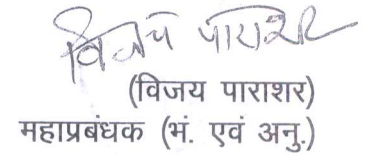 विजय पाराशर
(विजय पाराशर)
महाप्रबंधक (भं. एवं अनु.)